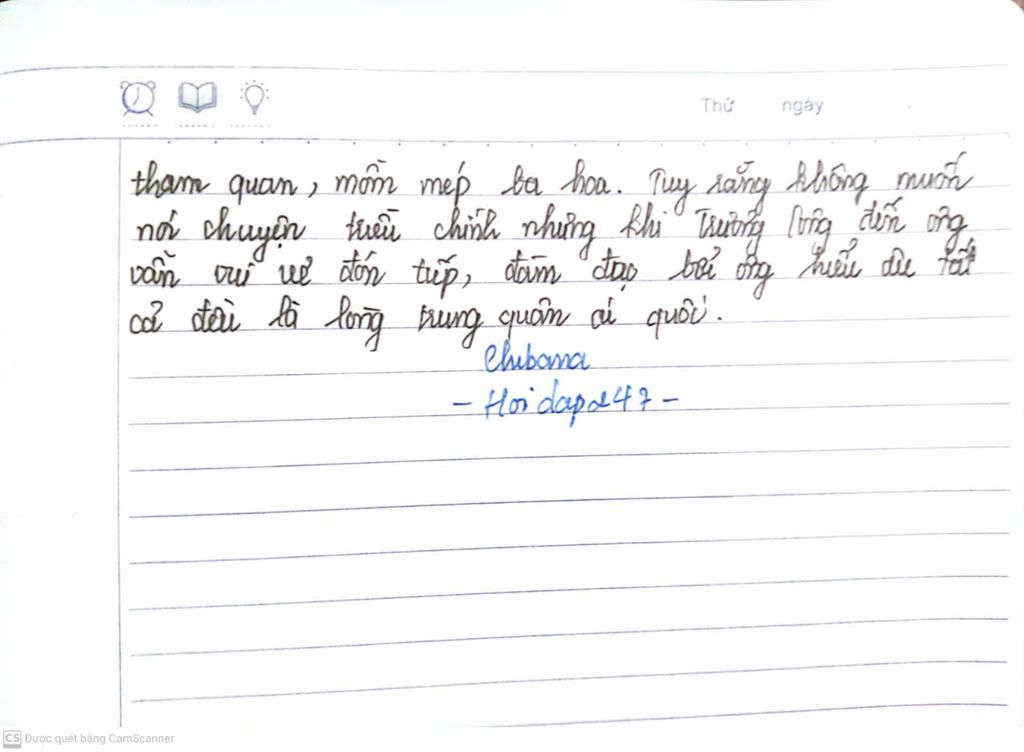 Thứ ngày
tham quan, mồm mép ba hoa. Tuy rằng không muốn
nói chuyện triều chính nhưng khi Trường Công đến ông
vẫn vui vẻ đón tiếp, đàm đạo bởi ông hiểu
cả đều là lòng trung quân ái quốc.
Chibana
- Hoidap247 -
CS Được quét bằng CamScanner